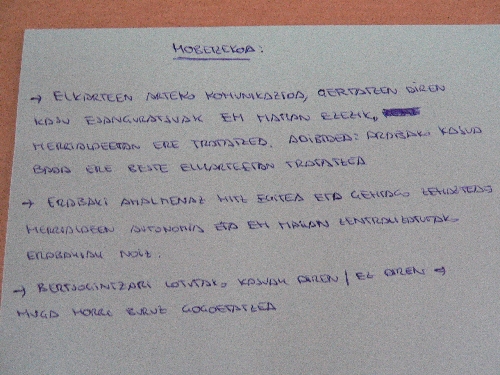 HOBETZEKOA:
→ ELKARTEEN ARTEKO KOMUNIKAZIOA, GERTATZEN DIREN
KASU ESANGURATSUAK EH MAILAN EZEZIK,
HERRIALDEETAN ERE TRATATZEA. ADIBIDEA: ARABAKO KASUA
BADA ERE BESTE ELKARTEETAN TRATATZEA
→ ERABAKI AHALMENAZ HITZ EGITEA ETA GEHIAGO ZEHAZTEA
HERRIALDEEN AUTONOMIA ETA EH MAILAN ZENTRALIZATUTAKO
ERABAKIAK NOIZ.
→ BERTSOGINTZARI LOTUTAKO KASUAK DIREN / EZ DIREN →
MUGA HORRI BURUZ GOGOETATZEA